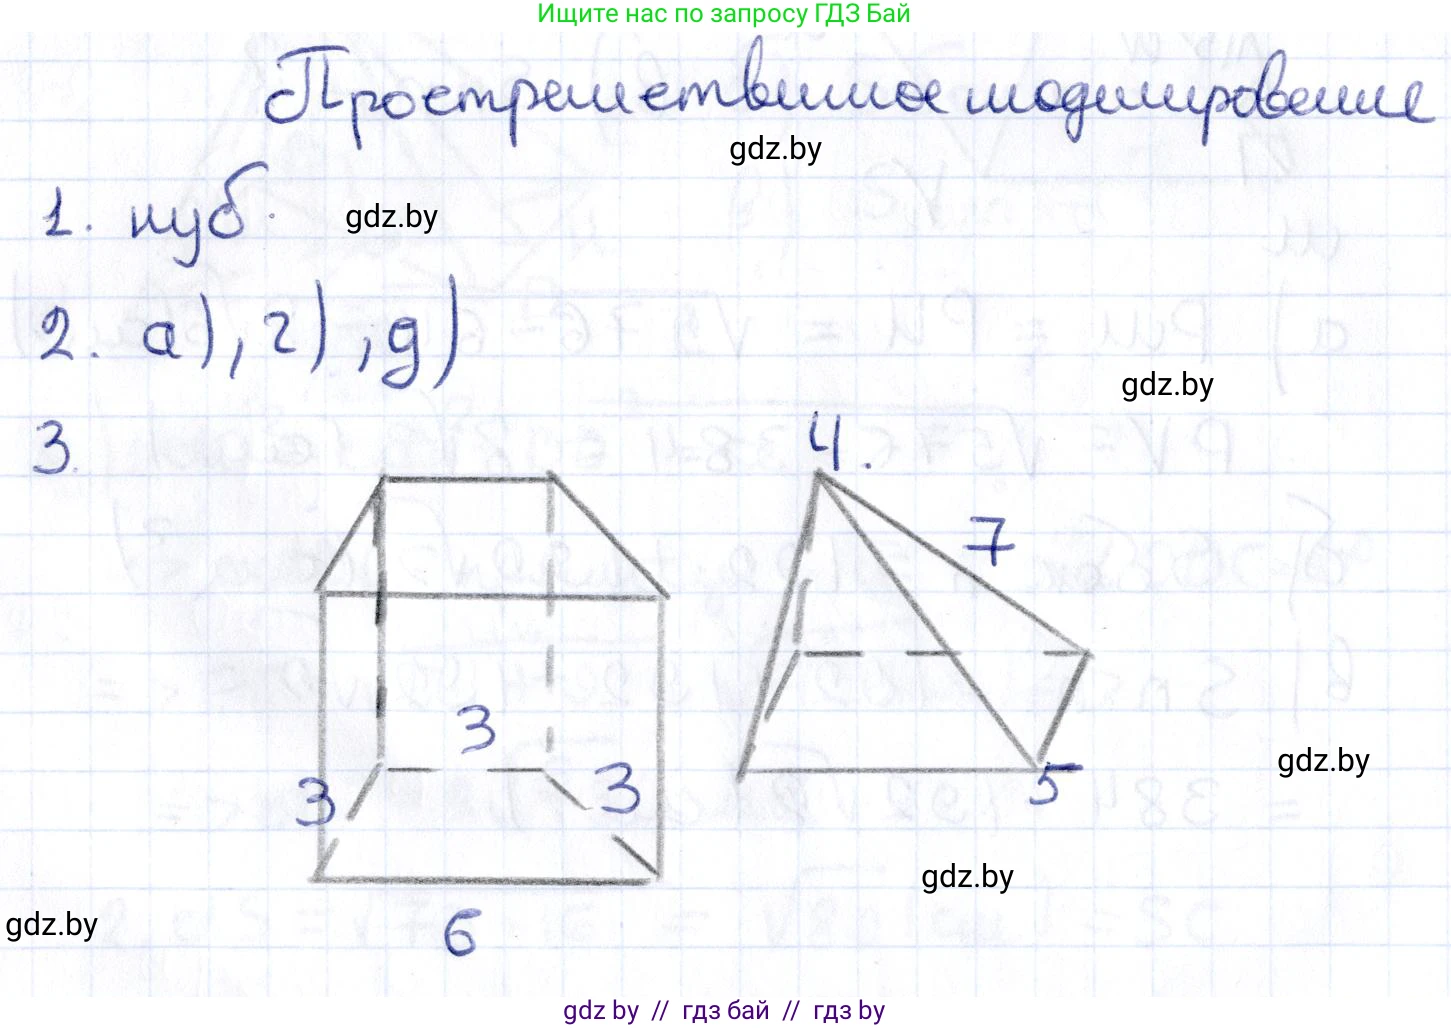 Ищите нас по запросу ГДЗ Бай
Пространственное моделирование
gdz.by
1. куб.
gdz.by
2. а), г), д)
gdz.by
3.
4.
7
3
3
3
5
gdz.by
gdz.by
6
gdz.by
gdz by // гдз бай // гдз by